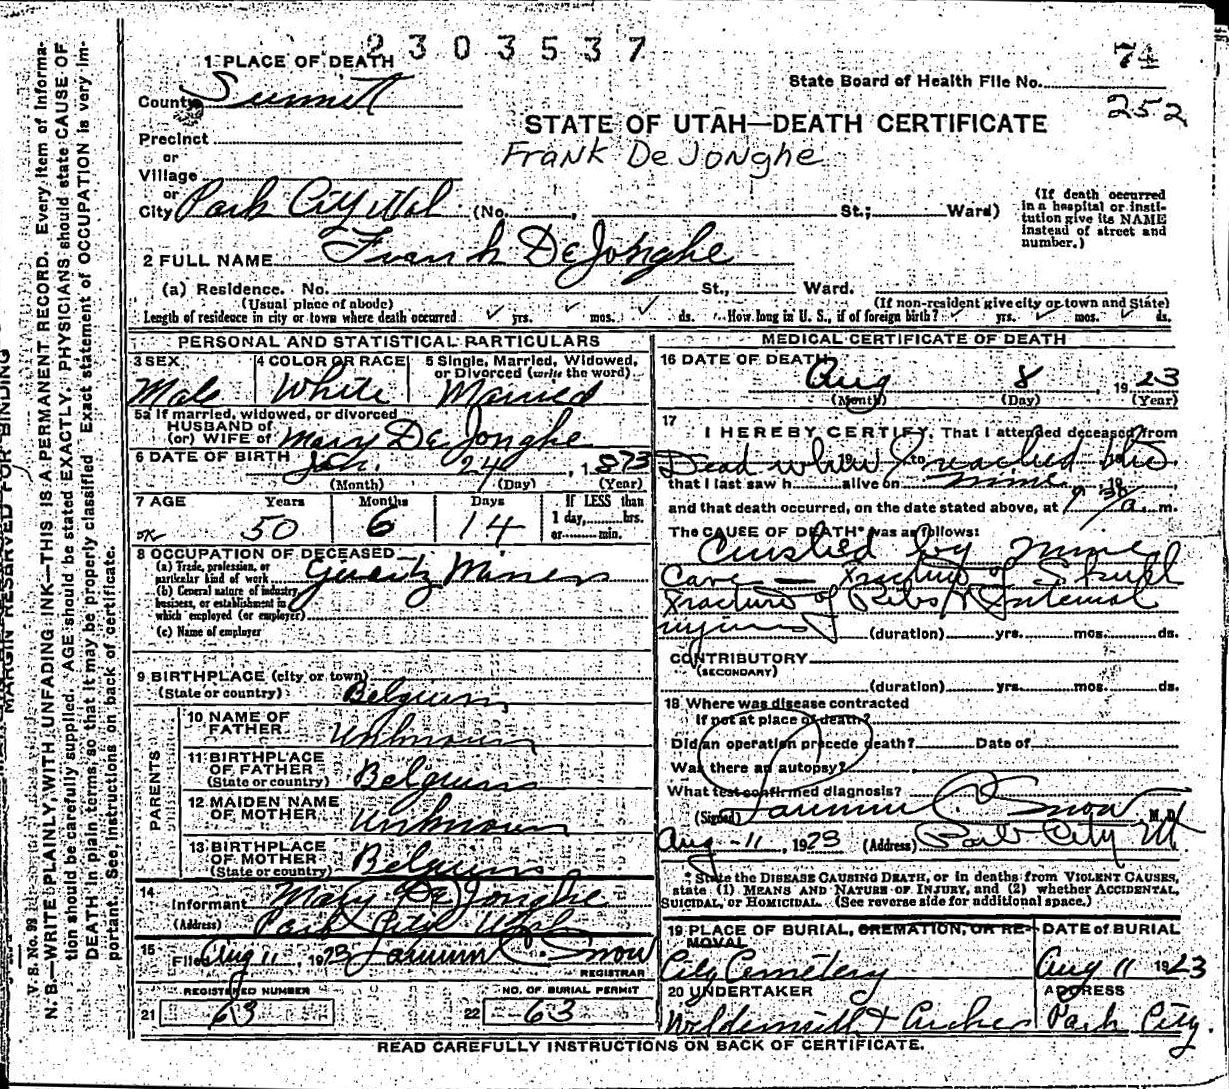 2303537
74
1 PLACE OF DEATH
State Board of Health File No.
252
County Summit
STATE OF UTAH—DEATH CERTIFICATE
Frank DeJonghe
Precinct
or
Village
or
City Park City Utah (No. , St.; Ward)
(If death occurred in a hospital or institution give its NAME instead of street and number.)
2 FULL NAME Frank DeJonghe
(a) Residence. No. St., Ward.
(Usual place of abode) (If non-resident give city or town and State)
Length of residence in city or town where death occurred yrs. mos. ds. How long in U. S., if of foreign birth? yrs. mos. ds.
PERSONAL AND STATISTICAL PARTICULARS
3 SEX 4 COLOR OR RACE 5 Single, Married, Widowed, or Divorced (write the word)
Male White Married
5a If married, widowed, or divorced
HUSBAND of
(or) WIFE of Mary DeJonghe
6 DATE OF BIRTH Jan. 24, 1873
(Month) (Day) (Year)
7 AGE Years Months Days If LESS than
1 day, hrs.
or min.
OK 50 6 14
8 OCCUPATION OF DECEASED
(a) Trade, profession, or
particular kind of work Quartz Miner
(b) General nature of industry,
business, or establishment in
which employed (or employer)
(c) Name of employer
9 BIRTHPLACE (city or town)
(State or country) Belgium
PARENTS
10 NAME OF
FATHER Unknown
11 BIRTHPLACE
OF FATHER
(State or country) Belgium
12 MAIDEN NAME
OF MOTHER Unknown
13 BIRTHPLACE
OF MOTHER
(State or country) Belgium
14
Informant Mary DeJonghe
(Address) Park City Utah
15
Filed Aug 11, 1923 C. Snow
REGISTRAR
REGISTERED NUMBER NO. OF BURIAL PERMIT
21 63 22 63
MEDICAL CERTIFICATE OF DEATH
16 DATE OF DEATH
Aug 8 1923
(Month) (Day) (Year)
17
I HEREBY CERTIFY, That I attended deceased from
Dead when I reached the 19 to 19
that I last saw h alive on mine 19
and that death occurred, on the date stated above, at a. m.
The CAUSE OF DEATH* was as follows:
Crushed by Mine
Cave — Fracture of Skull
Fracture of Ribs & Internal
injuries (duration) yrs. mos. ds.
CONTRIBUTORY
(SECONDARY)
(duration) yrs. mos. ds.
18 Where was disease contracted
if not at place of death?
Did an operation precede death? Date of
Was there an autopsy?
What test confirmed diagnosis?
(Signed) C. Snow M. D.
Aug-11, 1923 (Address) Park City Ut
* State the DISEASE CAUSING DEATH, or in deaths from VIOLENT CAUSES,
state (1) MEANS AND NATURE OF INJURY, and (2) whether ACCIDENTAL,
SUICIDAL, or HOMICIDAL. (See reverse side for additional space.)
19 PLACE OF BURIAL, CREMATION, OR REMOVAL DATE of BURIAL
City Cemetery Aug 11 1923
20 UNDERTAKER ADDRESS
& Archer Park City.
READ CAREFULLY INSTRUCTIONS ON BACK OF CERTIFICATE.
MARGIN RESERVED FOR BINDING
V. S. No. 99
N. B.—WRITE PLAINLY, WITH UNFADING INK—THIS IS A PERMANENT RECORD. Every item of informa-
tion should be carefully supplied. AGE should be stated EXACTLY. PHYSICIANS should state CAUSE OF
DEATH in plain terms, so that it may be properly classified. Exact statement of OCCUPATION is very im-
portant. See instructions on back of certificate.